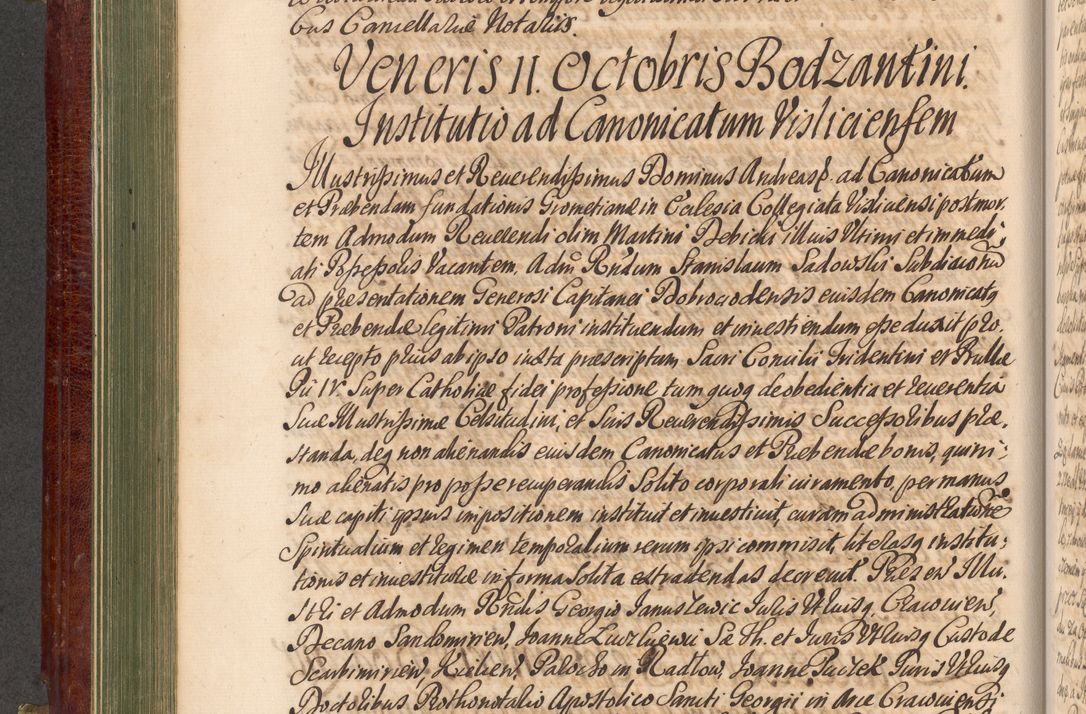 bus Cancellariæ Notariis.
Veneris 11. Octobris Bodzantini.
Institutio ad Canonicatum Visliciensem
Illustrissimus et Reuerendissimus Dominus Andreas E. ad Canonicatum
et Præbendam fundationis Grometianæ in Ecclesia Collegiata Visliciensi post mor,
tem Admodum Reuerendi olim Martini Debicki illius Vltimi et immedi,
ati Possessoris Vacantem, Adm Rndum Stanislaum Sadowski Subdiaconū
ad præsentationem Generosi Capitanei Dobrocodensis eiusdem Canonicatq
et Præbendæ legitimi Patroni instituendum et inuestiendum esse duxit pro,
ut recepto prius ab ipso iuxta præscriptum Sacri Concilii Tridentini et Bullæ
Pii IV. Super Catholicæ fidei professione tum quoq de obedientia et reuerentia
Suæ Illustrissimæ Celsitudini, et Suis Reuerendissimis Successoribus præ,
standa, deq non alienandis eiusdem Canonicatus et Præbendæ bonis, quini,
mo alienatis pro posse recuperandis Solito corporali iuramento, per manus
Suæ capiti ipsius impositionem instituit et inuestiuit, curam administratione
Spiritualium et regimen temporalium rerum ipsi commisit, literasq institu,
tionis et inuestituræ in forma Solita extradendas decreuit. Præsen Illu,
stri et Admodum Rndis Georgio Januszewic Juris Vtriusq, Cracouien,
Decano Sandomirien, Joanne Zwrzuiewic Sæ Th. et Juris Vtriusq Custode
Scarbimirien, Kielien, Parocho in Radlow, Joanne Paczek Juris Vtriusq
Doctoribus Prothonotario Apostolico Sancti Georgii in Arce Cracouiensi